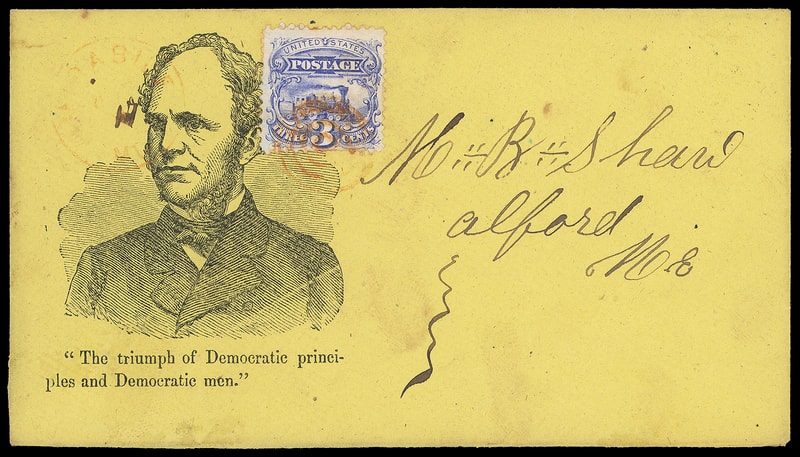 UNITED STATES
POSTAGE
THREE 3 CENTS
Mr R Shaw
alford
Me
“ The triumph of Democratic princi-
ples and Democratic men.”